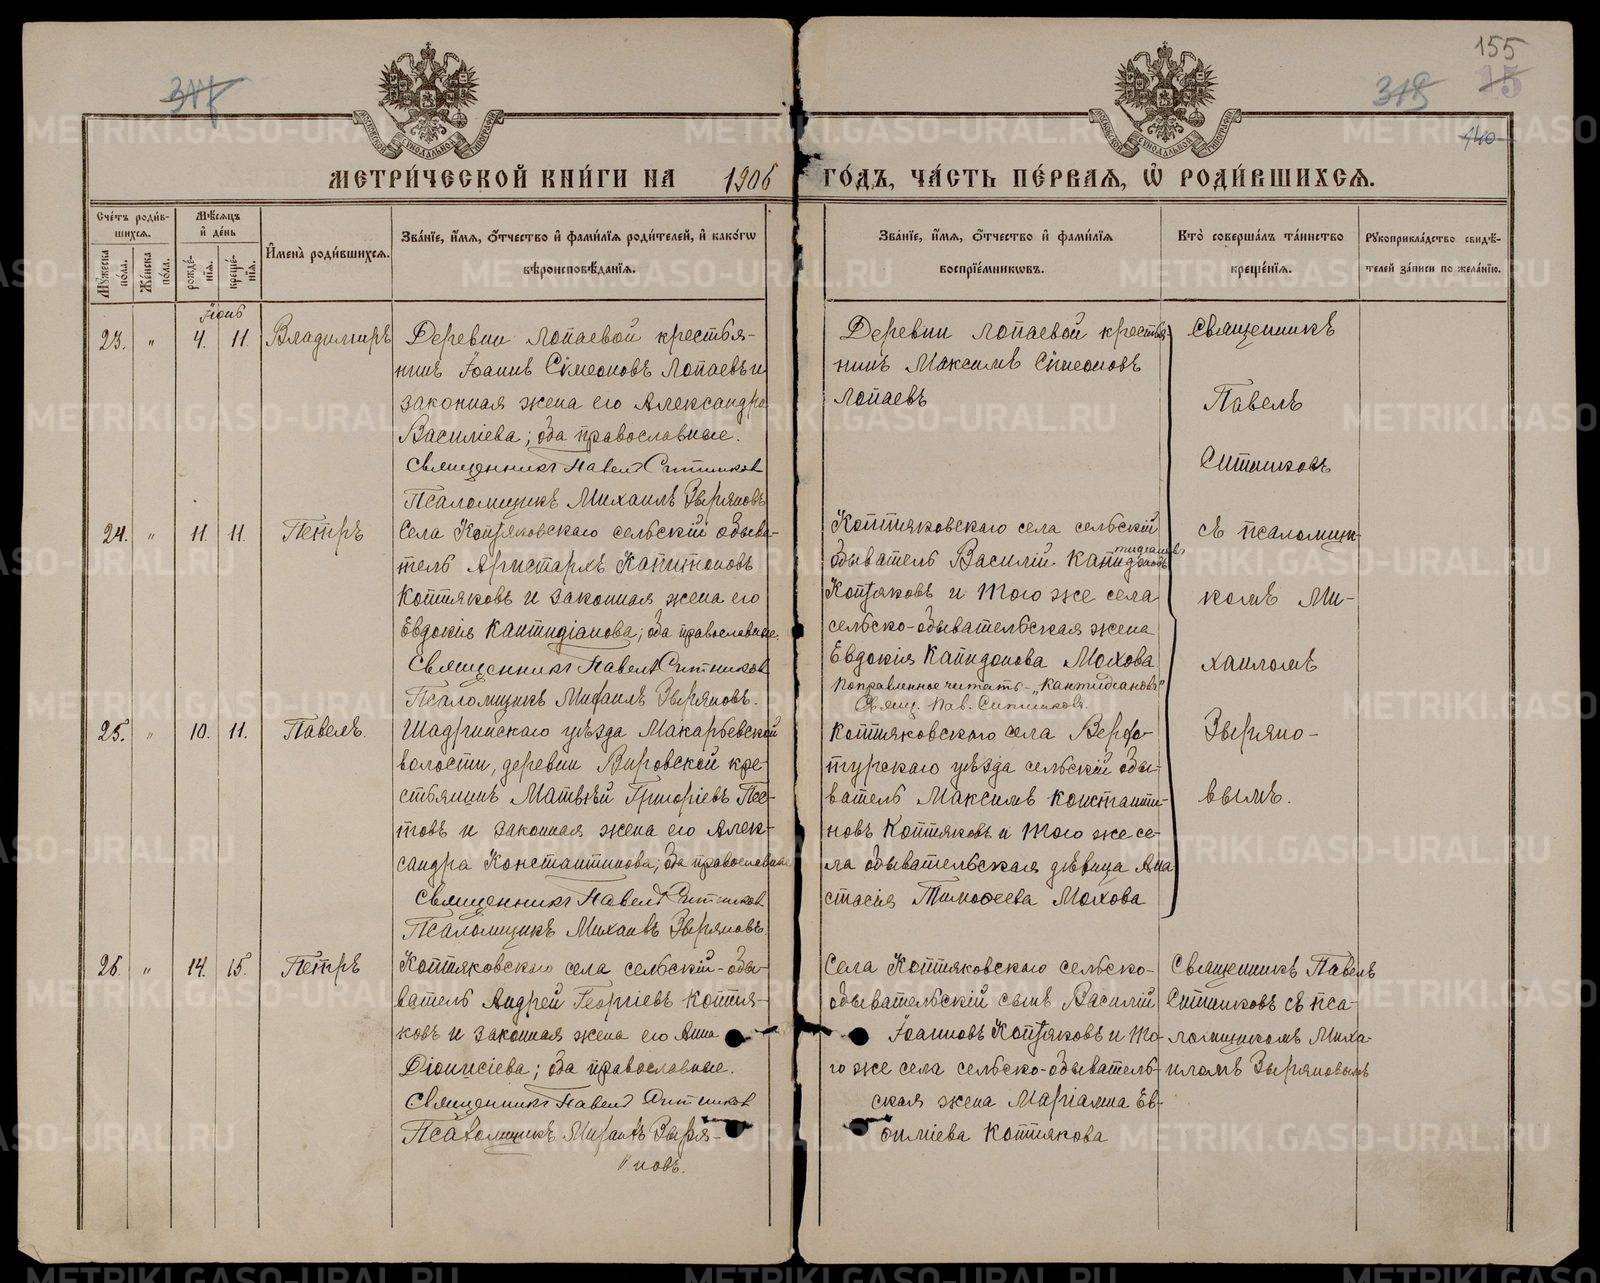 155
317
318
15
140
МЕТРИ́ЧЕСКОЙ КНИ́ГИ НА 1906 ГО́ДЪ, ЧА́СТЬ ПЕ́РВАЯ, Ѡ РОДИ́ВШИХСЯ.
Сче́тъ роди́вшихся.
Мꙋ́жеска по́ла.
Же́нска по́ла.
Мѣ́сяцъ и де́нь
рожде́нїя.
креще́нїя.
Имена̀ роди́вшихся.
Зва́нїе, и́мя, ѻ́тчество и фами́лїя роди́телей, и како́гѡ
вѣроисповѣ́данїя.
Зва́нїе, и́мя, ѻ́тчество и фами́лїя
воспрїе́мникѡвъ.
Кто̀ соверша́лъ та́инство
креще́нїя.
Рꙋкоприкла́дство свидѣ́-
телей за́писи по жела́нїю.
Іюнь
23. " 4. 11. Владимиръ
Деревни Лопаевой крестья-
нинъ Іоаннъ Сімеоновъ Лопаевъ и
законная жена его Александра
Василіева; оба православные.
Священникъ Павелъ Ситников
Псаломщикъ Михаилъ Зыряновъ
Деревни Лопаевой крестья-
нинъ Максимъ Сімеоновъ
Лопаевъ
Священникъ
Павелъ
Ситниковъ
24. " 11. 11. Петръ
Села Коптяковскаго сельскій обыва-
тель Аристархъ Капитоновъ
Коптяковъ и законная жена его
Евдокія Кантидіанова; оба православные.
Священникъ Павелъ Ситников
Псаломщикъ Михаилъ Зыряновъ.
Коптяковскаго села сельскій
обыватель Василій
Коптяковъ и того же села
сельско-обывательская жена
Евдокія Капидонова Мохова
Поправленное читать - "Кантидіановъ"
Свящ. Пав. Ситниковъ.
съ псаломщи-
комъ Ми-
хаиломъ
25. " 10. 11. Павелъ.
Шадринскаго уѣзда Макарьевской
волости, деревни Вировской кре-
стьянинъ Матвѣй Григоріевъ Пес-
товъ и законная жена его Алек-
сандра Константинова; оба православные
Священникъ Павелъ Ситников
Псаломщикъ Михаилъ Зыряновъ.
Коптяковскаго села Верхо-
турскаго уѣзда сельскій обы-
ватель Максимъ Константи-
новъ Коптяковъ и того же се-
ла обывательская дѣвица Ана
стасія Тимоѳеева Мохова
Зыряно-
вымъ.
26. " 14. 15. Петръ
Коптяковскаго села сельскій-обы-
ватель Андрей Георгіевъ Коптя-
ковъ и законная жена его Анна
Діонисіева; оба православные.
Священникъ Павелъ Ситников
Псаломщикъ Михаилъ Зыря-
новъ.
Села Коптяковскаго сельско-
обывательскій сынъ Василій
Іоанновъ Коптяковъ и то-
го же села сельско-обыватель-
ская жена Маріамна Ев-
ѳиміева Коптякова
Священникъ Павелъ
Ситниковъ съ пса-
ломщикомъ Миха-
иломъ Зыряновымъ
METRIKI.GASO-URAL.RU